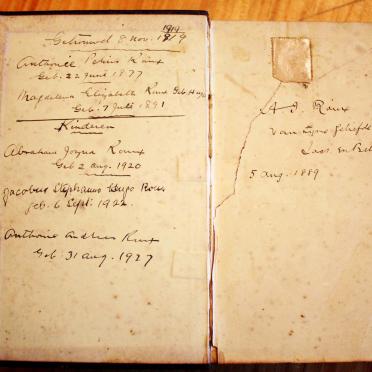 1919
Getrouwd 8 nov. 1919
Anthonie Petrus Roux
Geb: 22 June 1877
Magdalena Elizabeth Roux Geb.
Geb: 7 Julie 1891
Kinderen
Abraham Joshua Roux
Geb 2 aug. 1920
Jacobus Stephanus Hugo Roux
geb. 6 Sept: 1922
Anthonie Andries Roux
Geb: 31 aug. 1927
A. J. Roux
van zyne geliefde
en
5 aug. 1889